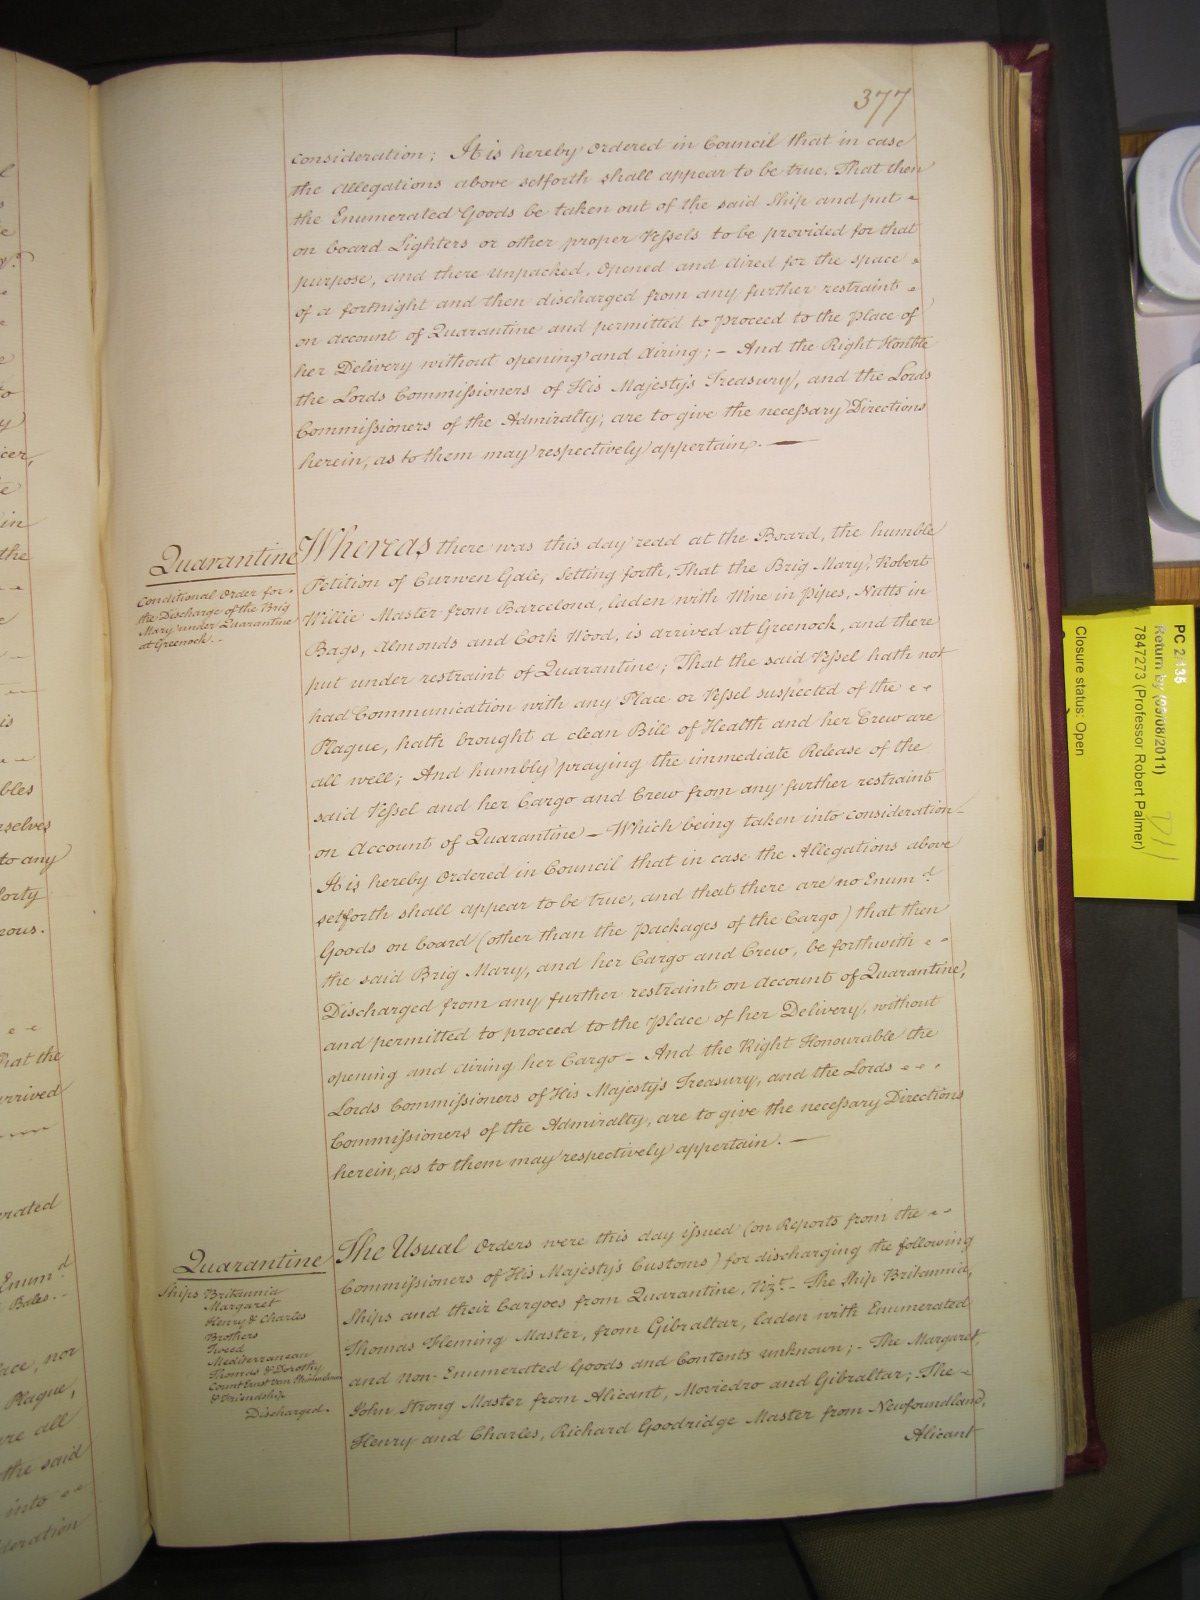 377
consideration; It is hereby Ordered in Council that in case
the Allegations above setforth shall appear to be true, That then
the Enumerated Goods be taken out of the said Ship and put
on board Lighters or other proper Veſsels to be provided for that
purpose, and there unpacked, Opened and Aired for the space
of a fortnight and then discharged from any further restraint
on account of Quarantine and permitted to Proceed to the Place of
her Delivery without opening and Airing; – And the Right Honble
the Lords Commiſsioners of His Majesty's Treasury, and the Lords
Commiſsioners of the Admiralty, are to give the neceſsary Directions
herein, as to them may respectively appertain. —
Quarantine
Conditional Order for
the Discharge of the Brig
Mary under Quarantine
at Greenock. -
Whereas there was this day read at the Board, the humble
Petition of Curwen Gale, Setting forth, That the Brig Mary, Robert
Willie Master from Barcelona, laden with Wine in Pipes, Nutts in
Bags, Almonds and Cork Wood, is arrived at Greenock, and there
put under restraint of Quarantine; That the said Veſsel hath not
had Communication with any Place or Veſsel suspected of the
Plague, hath brought a clean Bill of Health and her Crew are
all well; And humbly praying the immediate Release of the
said Veſsel and her Cargo and Crew from any further restraint
on Account of Quarantine – Which being taken into consideration –
It is hereby Ordered in Council that in case the Allegations above
setforth shall appear to be true, and that there are no Enum.d
Goods on board (other than the Packages of the Cargo) that then
the said Brig Mary, and her Cargo and Crew, be forthwith
Discharged from any further restraint on Account of Quarantine,
and permitted to proceed to the Place of her Delivery, without
opening and airing her Cargo – And the Right Honourable the
Lords Commiſsioners of His Majesty's Treasury, and the Lords
Commiſsioners of the Admiralty, are to give the neceſsary Directions
herein, as to them may respectively appertain. —
Quarantine
Ships Britannia
Margaret
Henry & Charles
Brothers
Tweed
Mediterranean
Thomas & Dorothy
Count Ernst van
& Friendship
Discharged.
The Usual Orders were this day iſsued (on Reports from the
Commiſsioners of His Majesty's Customs) for discharging the following
Ships and their Cargoes from Quarantine, Vizt. – The Ship Britannia,
Thomas Fleming Master, from Gibraltar, laden with Enumerated
and non-Enumerated Goods and Contents unknown; – The Margaret,
John Strong Master from Alicant, Moviedro and Gibraltar; The
Henry and Charles, Richard Goodridge Master from Newfoundland,
Alicant
PC 2/135
Return by (09/08/2011)
7847273 (Professor Robert Palmer)
Closure status: Open